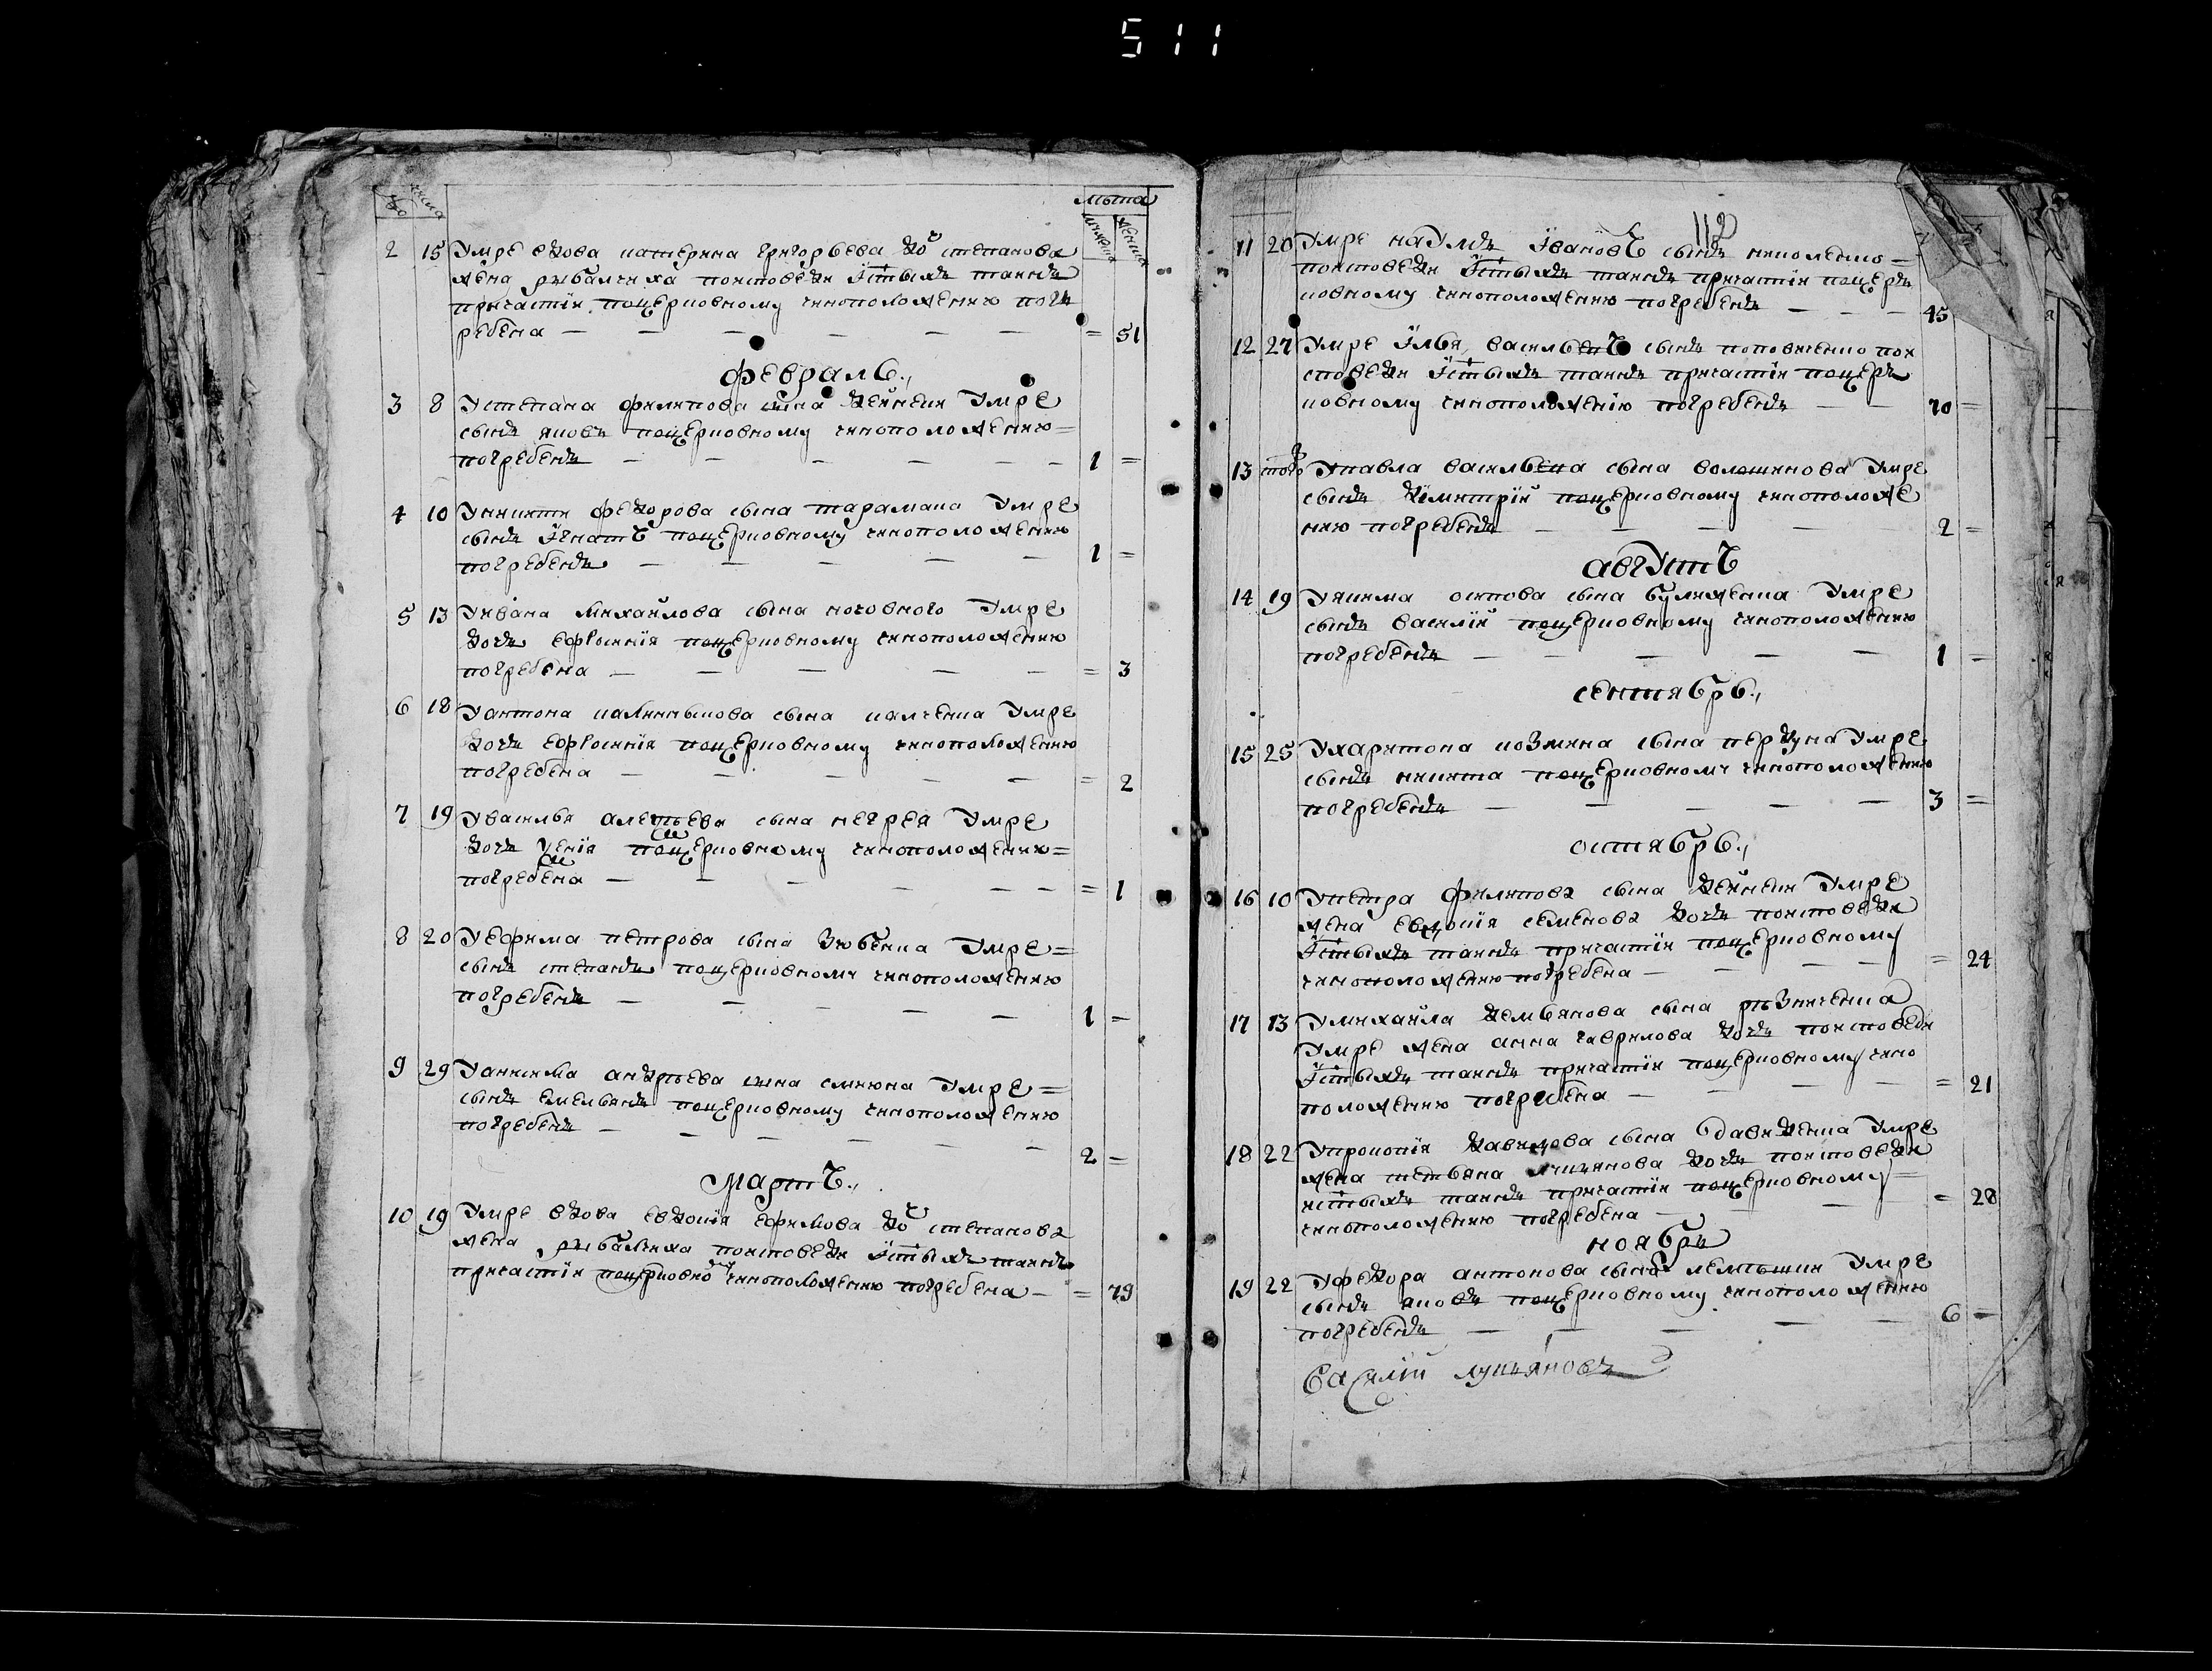 511
№ числа лѣта
мужеска женска
2 15 Умре вдова катерина григорьева до^ч степанова
жена рыбалчиха поисповѣди истыхъ таинъ
причастіи поцерковному чиноположению погъ
ребена — — — — — — = 51
февраль.,
3 8 Устепана филипова сына дейнеки умре
сынъ яковъ поцерковному чиноположению =
погребенъ — — — — — 1 =
4 10 Уникити федорова сына тарамана умре
сынъ Їгнатъ поцерковному чиноположению
погребенъ — — — — — 1 =
5 13 Уивана михайлова сына ноговного умре
дочъ ефросиния поцерковному чиноположению
погребена — — — — — = 3
6 18 Уантона калиникова сына калченка умре
дочъ ефросиния поцерковному чиноположению
погребена — — — — — = 2
7 19 Увасилья алетьева сына негрея умре
дочъ ксенія поцерковному чиноположению =
погребена — — — — — — = 1
8 20 Уефима петрова сына зюбенка умре =
сынъ степанъ поцерковному чиноположению
погребенъ — — — — — 1 =
9 29 Уаникима андрѣева сына умре =
сынъ емельянъ поцерковному чиноположению
погребенъ — — — — — — 2 =
мартъ.,
10 19 Умре вдова евдокія ефимова до^ч степанова
жена рыбалчиха поисповѣди Їстыхъ таинъ
причастіи поцерковно^му чиноположению погребена — = 79
112
11 20 Умре наумъ Ївановъ сынъ николенко =
поисповѣди Їстыхъ таинъ причастіи поцеръ
ковному чиноположению погребенъ — — — 45
12 27 Умре Їлья васильевъ сынъ поповиченко пои
сповѣди Їстыхъ таинъ причастіи поцеръ
ковному чиноположенію погребенъ — — 70 =
13 того^ж Упавла васильева сына волошинова умре
сынъ димитрій поцерковному чиноположе
нию погребенъ — — — — 2 =
августъ
14 19 Уякима осипова сына булиженка умре
сынъ василій поцерковному чиноположению
погребенъ — — — — — 1 =
сентябрь.,
15 25 Ухаритона козмина сына пердуна умре
сынъ никита поцерковному чиноположению
погребенъ — — — — — 3 =
октябрь.,
16 10 Упетра филипова сына дейнеки умре
жена евдокія семенова дочъ поисповѣди
Їстыхъ таинъ причастіи поцерковному
чиноположению погребена — — — — = 24
17 13 Умихайла демьянова сына рѣзниченка
умре жена анна гаврилова дочъ поисповеди
Їстыхъ таинъ причастіи поцерковному чино
положению погребена — — — — = 21
18 22 Упрокопія давидова сына давиденка умре
жена тетьяна дочъ поисповѣди
истыхъ таинъ причастіи поцерковному =
чиноположению погребена — — — = 28
ноябръ
19 22 Уфедора антонова сына лемѣшки умре
сынъ яковъ поцерковному чиноположению
погребенъ — — — — — 6 =
Василій лукъяновъ